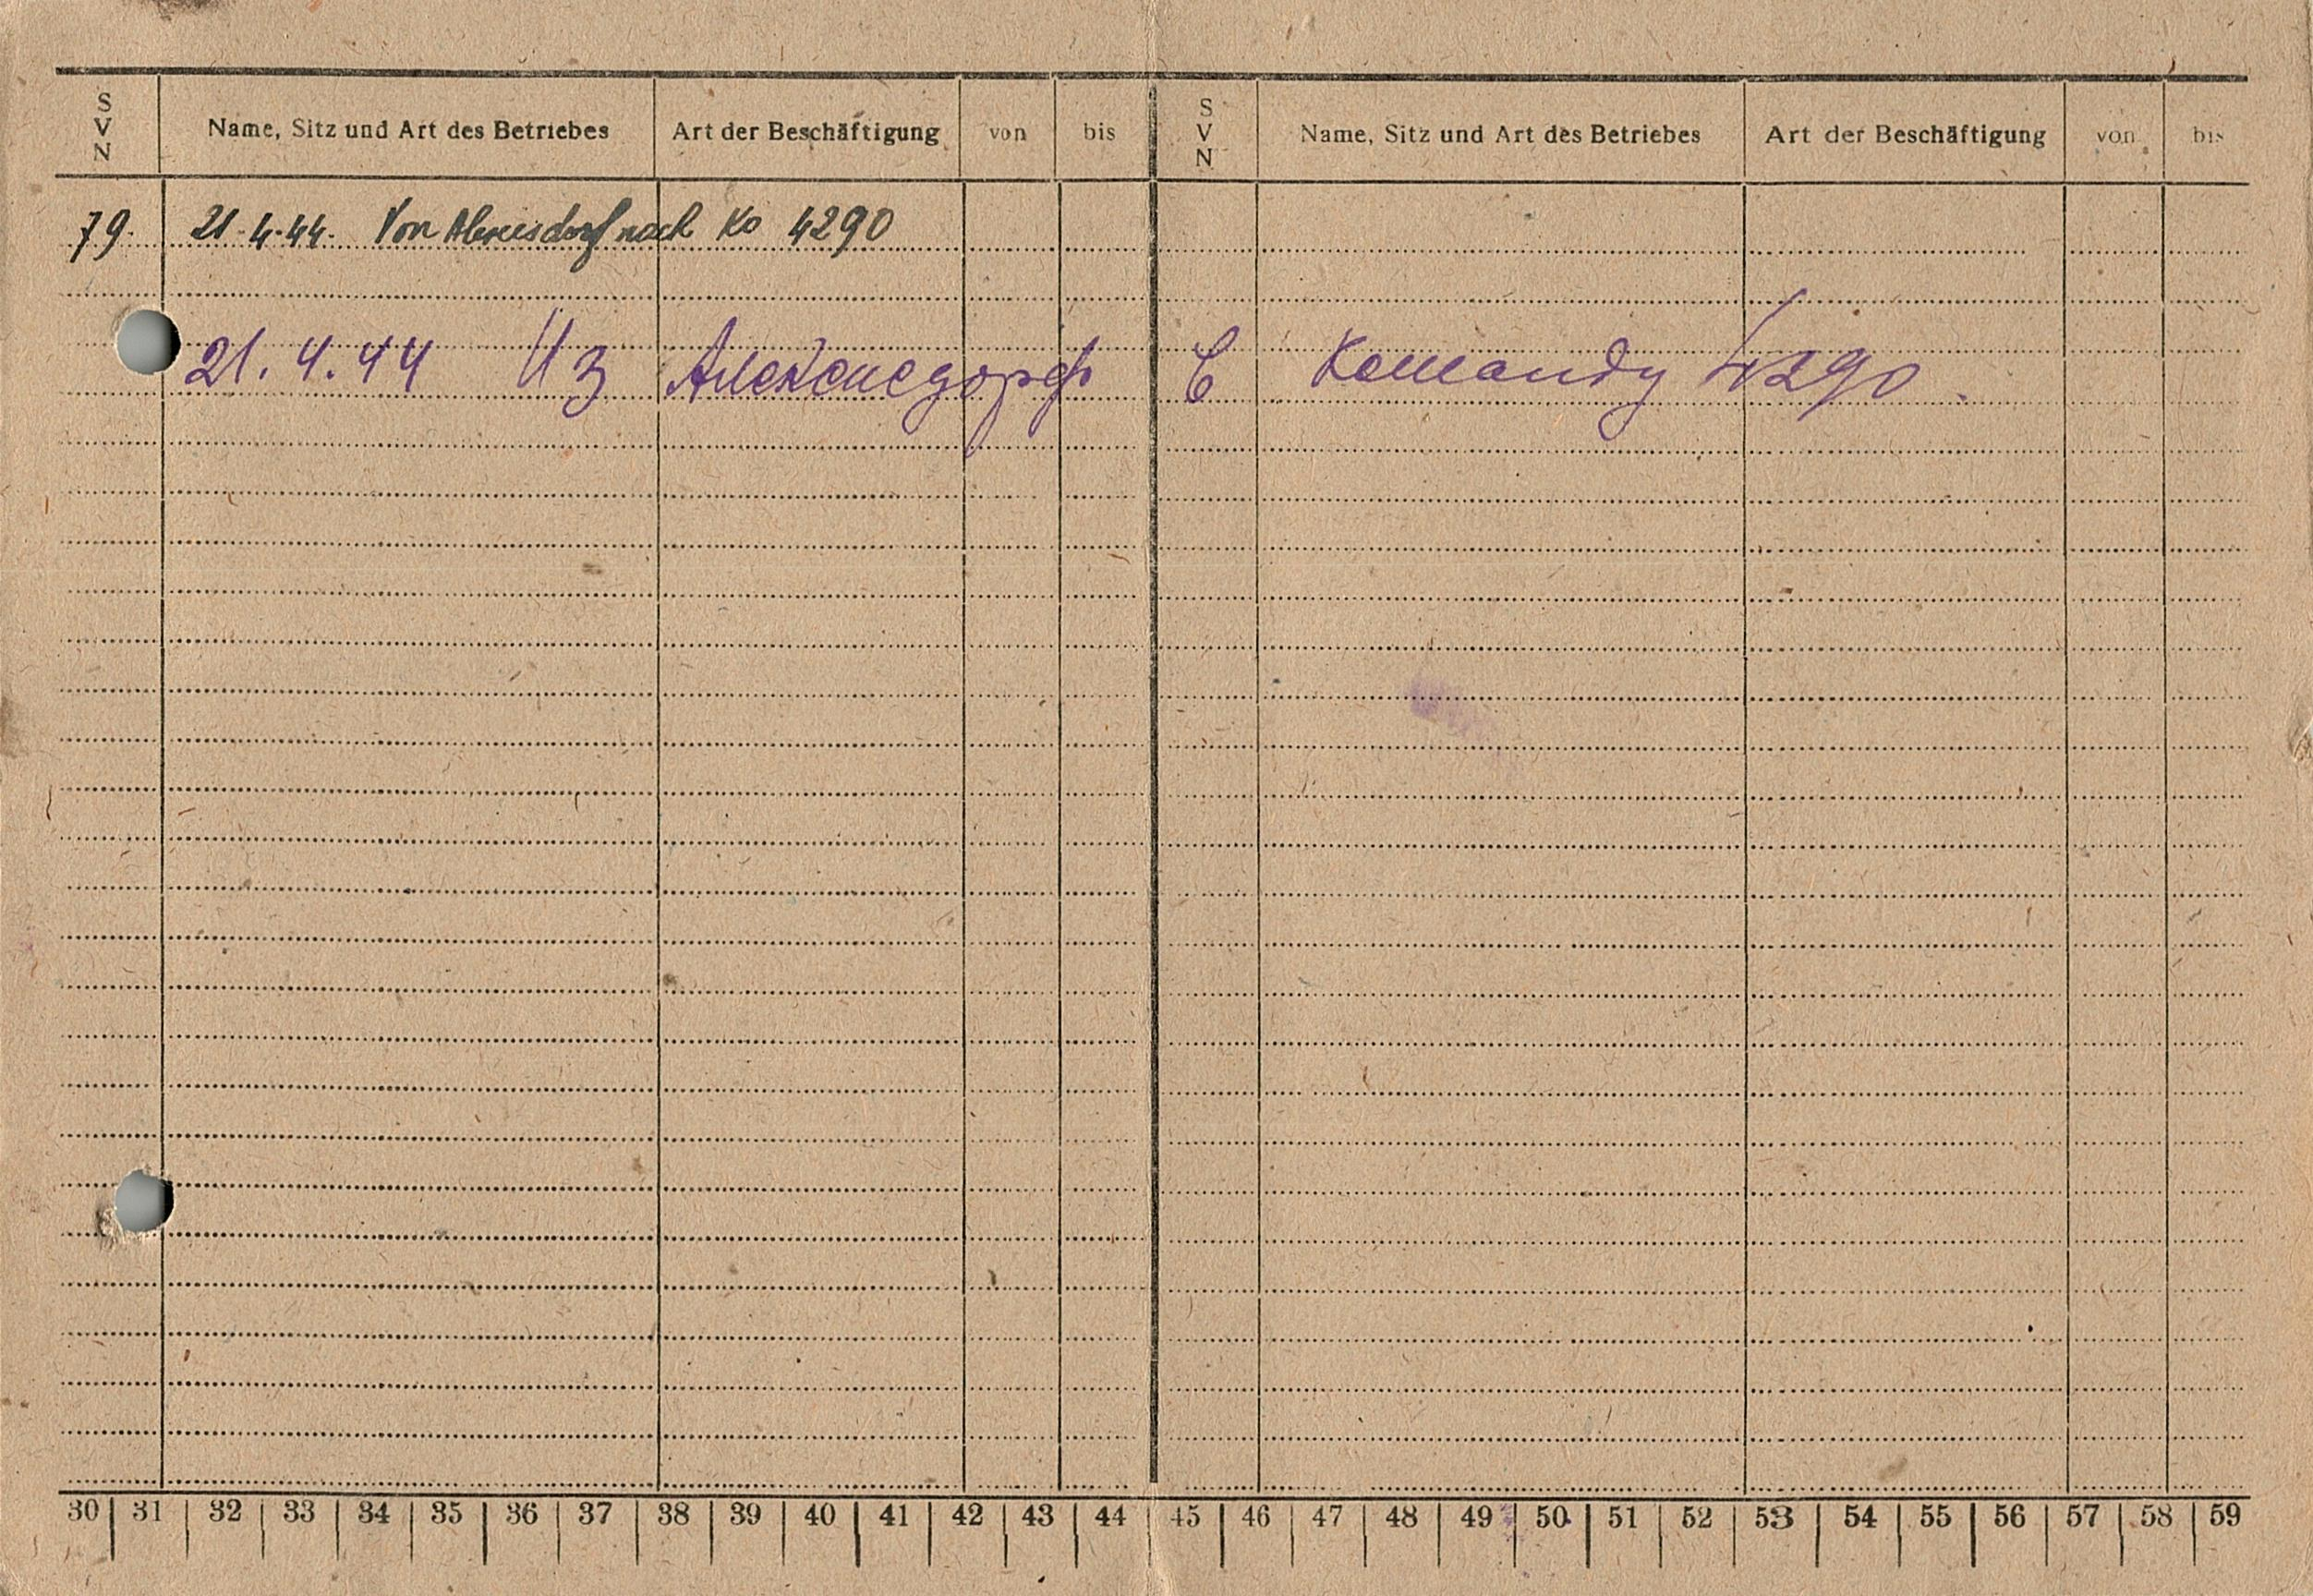 S V N Name, Sitz und Art des Betriebes Art der Beschäftigung von bis S V N Name, Sitz und Art des Betriebes Art der Beschäftigung von bis
79. 21.4.44. Von nach Ko 4290
21.4.44 Из Алексисдорф Команду 4290.
30 31 32 33 34 35 36 37 38 39 40 41 42 43 44 45 46 47 48 49 50 51 52 53 54 55 56 57 58 59